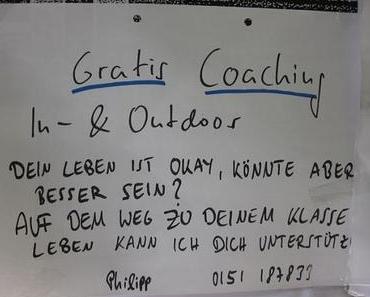 Gratis Coaching
In- & Outdoor
DEIN LEBEN IST OKAY, KÖNNTE ABER
BESSER SEIN?
AUF DEM WEG ZU DEINEM KLASSE
LEBEN KANN ICH DICH UNTERSTÜTZ
Philipp 0151